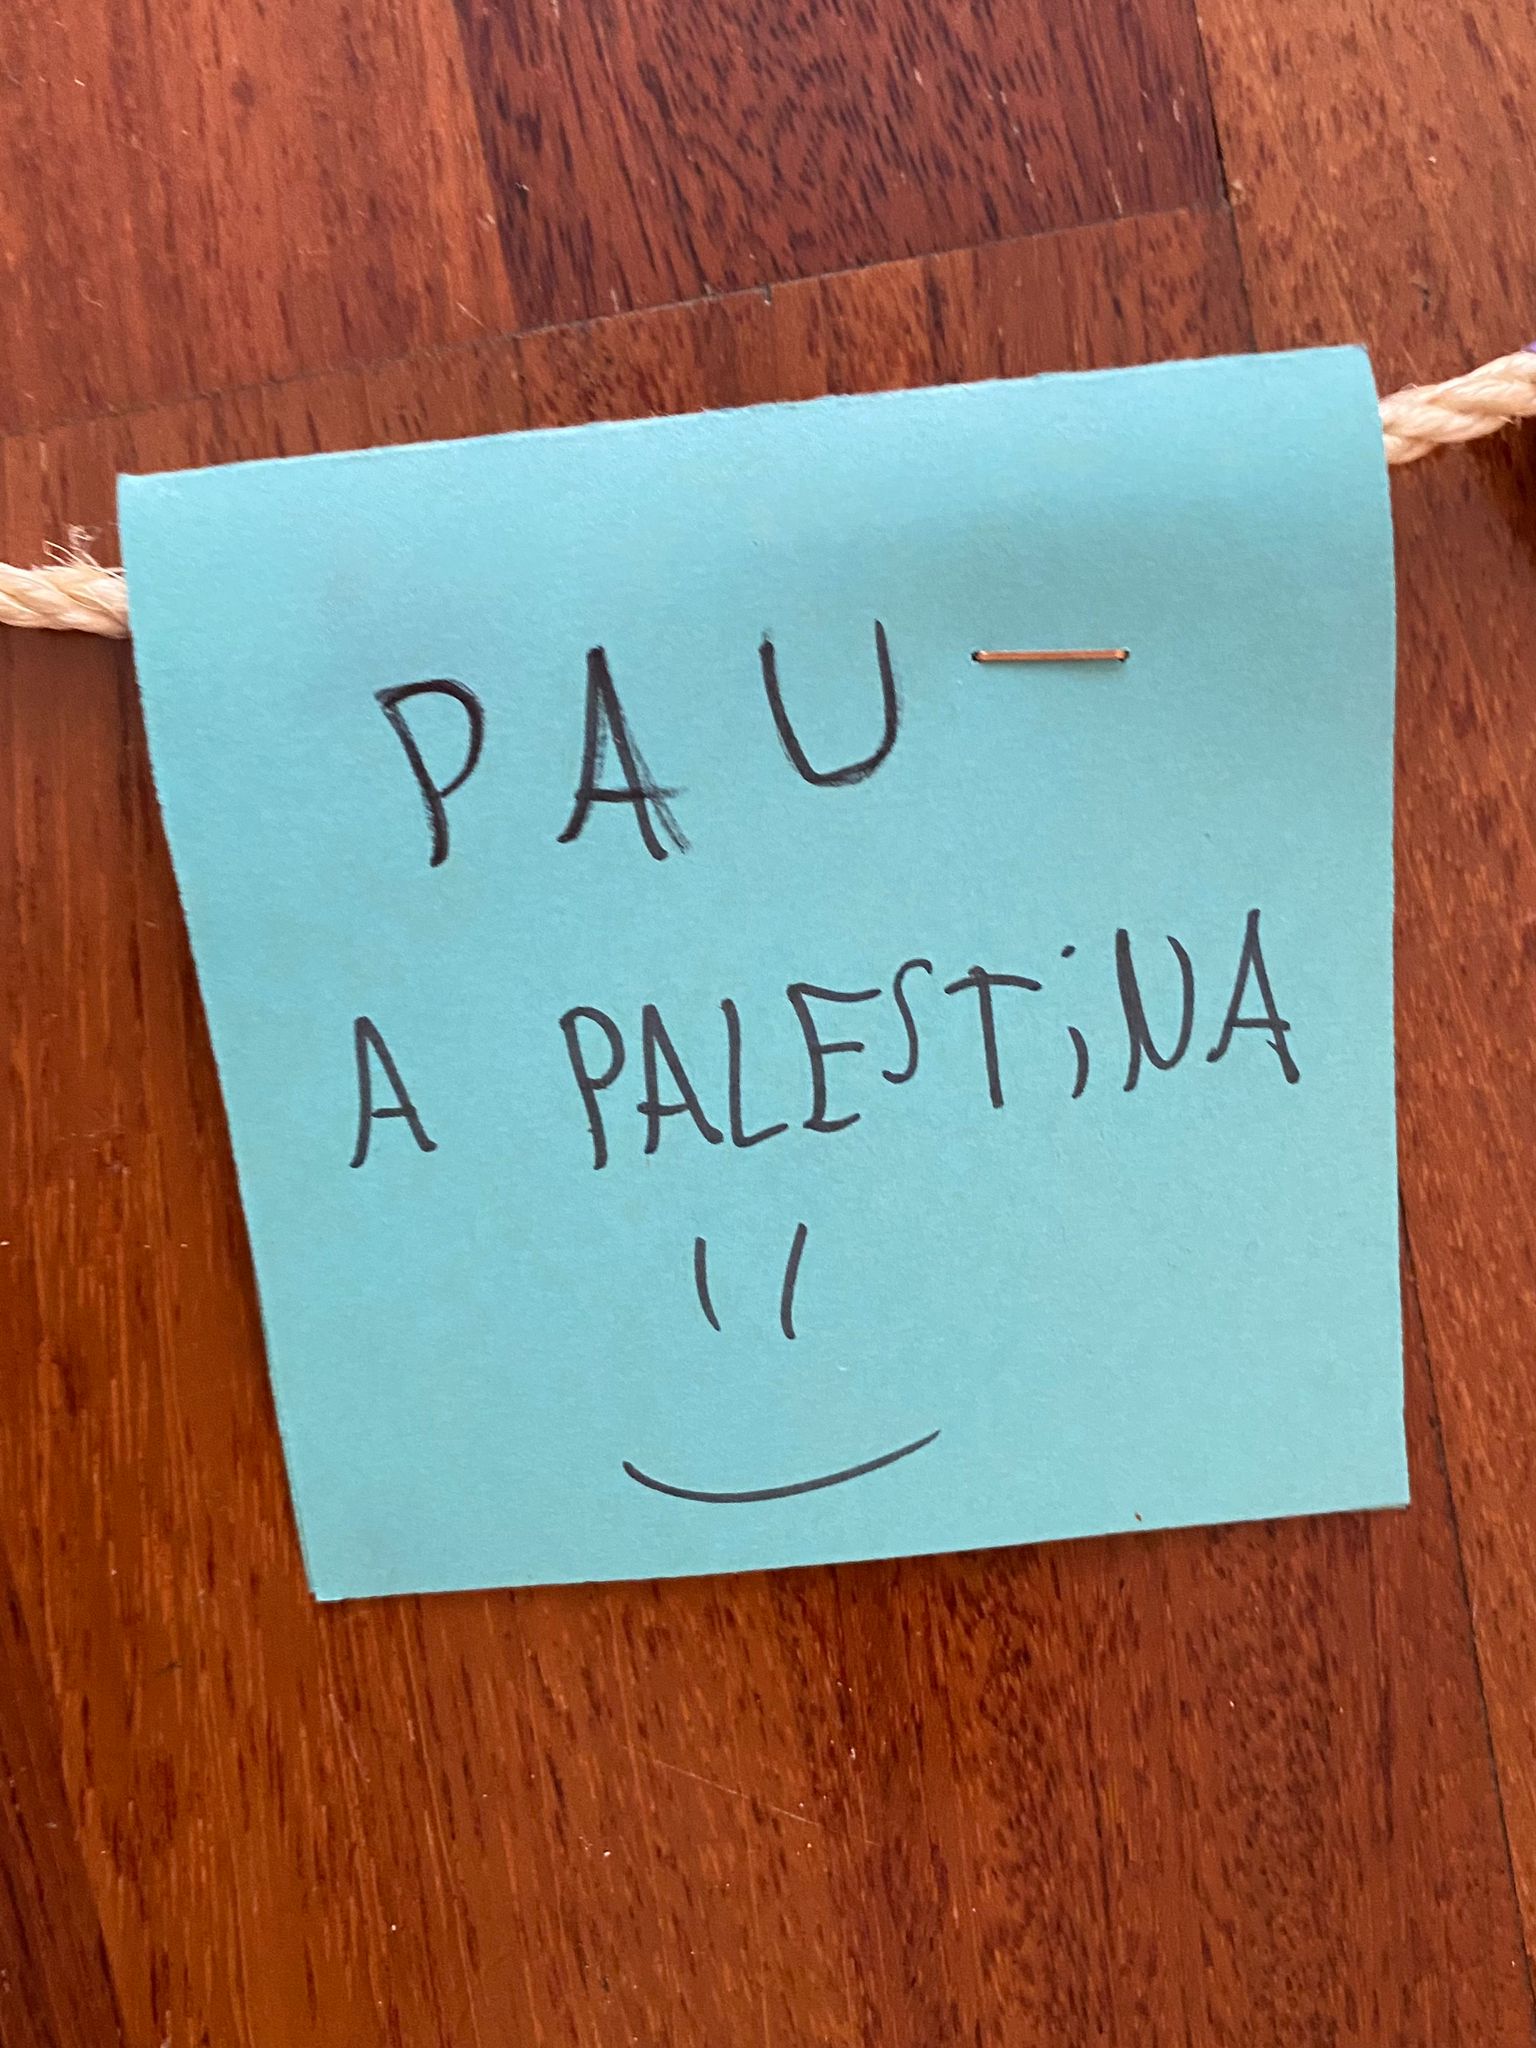 PAU
A PALESTiNA